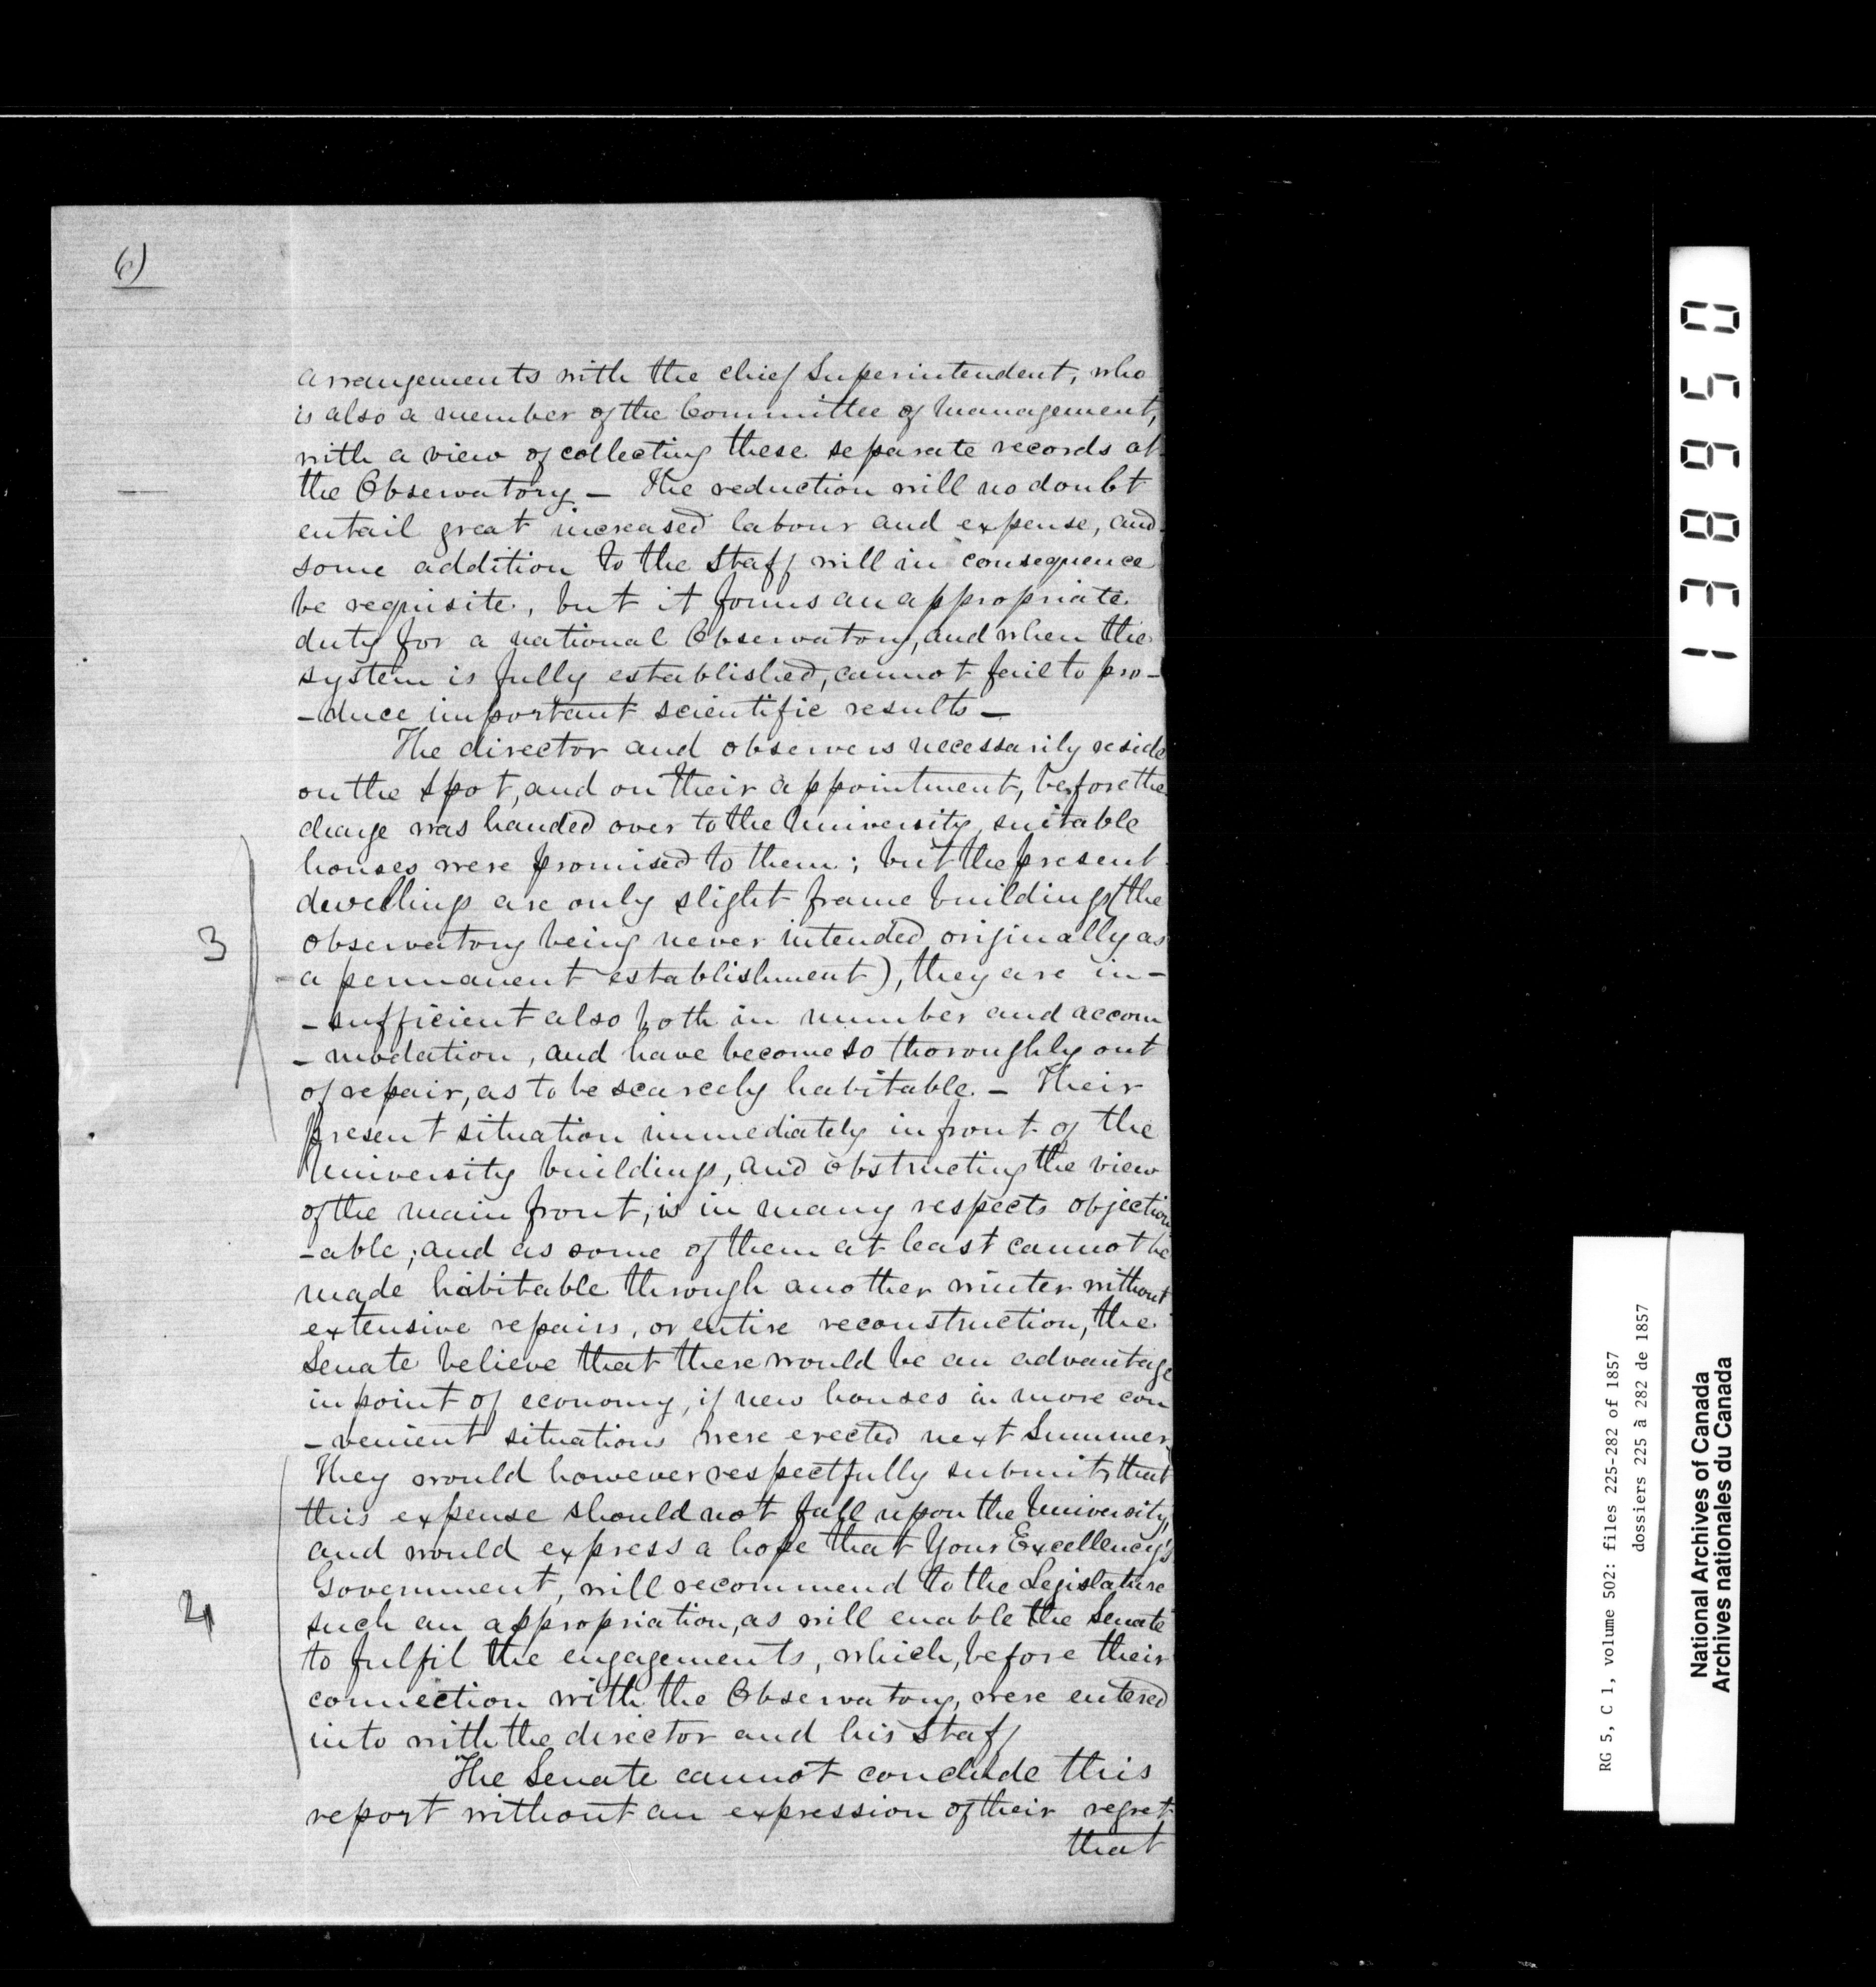 6)
arrangements with the chief Superintendent, who
is also a member of the Committee of Management,
with a view of collecting these separate records at
the Observatory — The reduction will no doubt
entail great increased labour and expense, and
some addition to the Staff will in consequence
be requisite, but it forms an appropriate
duty for a national Observatory, and when the
system is fully established, cannot fail to pro-
-duce important scientific results —
The director and observers necessarily reside
on the spot, and on their appointment, before the
charge was handed over to the University, suitable
houses were promised to them; but the present
dwellings are only slight frame buildings (the
3
observatory being never intended originally as
a permanent establishment), they are in-
-sufficient also both in number and accom
-modation, and have become so thoroughly out
of repair, as to be scarcely habitable. — Their
present situation immediately in front of the
University buildings, and obstructing the view
of the main front, is in many respects objection
-able; and as some of them at least cannot be
made habitable through another winter without
extensive repairs, or entire reconstruction, the
Senate believe that there would be an advantage
in point of economy, if new houses in more con
-venient situations were erected next Summer
They would however respectfully submit, that
this expense should not fall upon the University,
and would express a hope that Your Excellency's
Government, will recommend to the Legislature
4
such an appropriation, as will enable the Senate
to fulfil the engagements, which, before their
connection with the Observatory, were entered
into with the director and his Staff
The Senate cannot conclude this
report without an expression of their regret
that
138950
RG 5, C 1, volume 502: files 225-282 of 1857
dossiers 225 à 282 de 1857
National Archives of Canada
Archives nationales du Canada